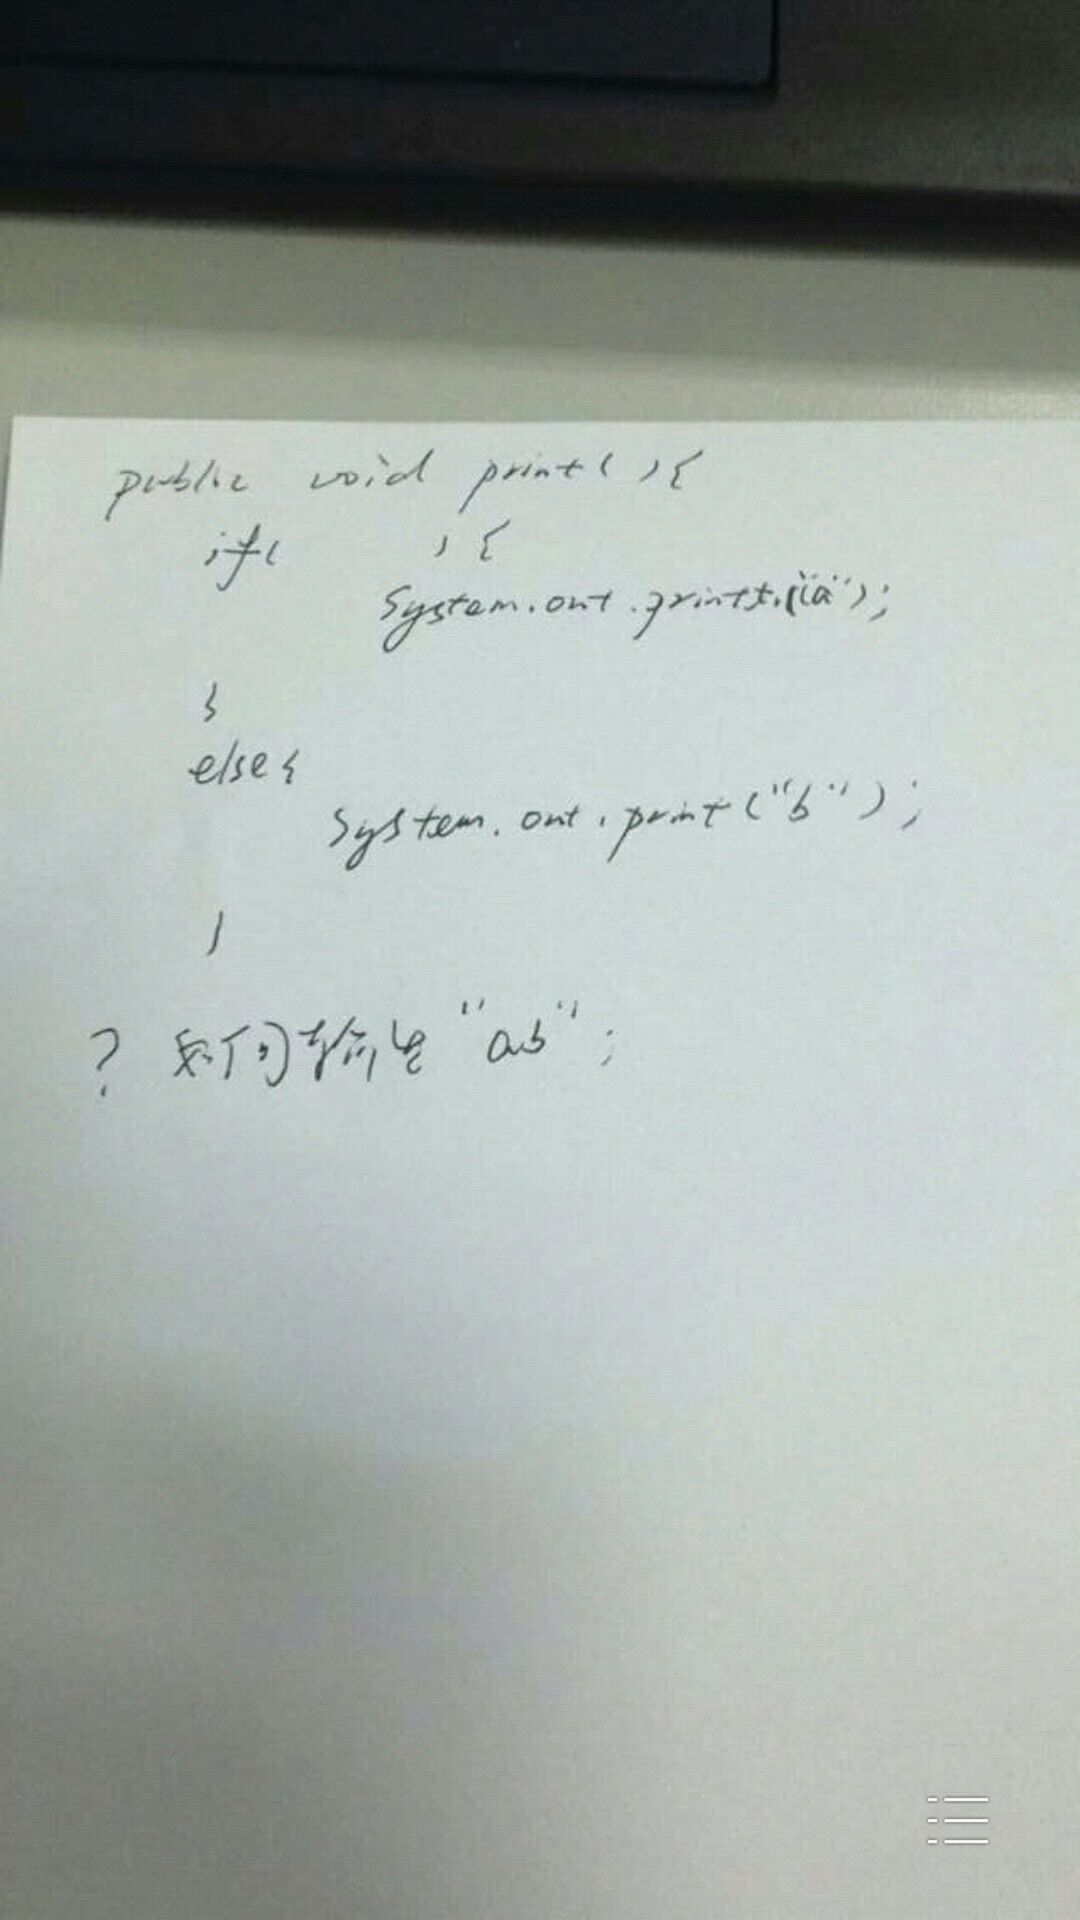 public void print( ){
if( ) {
System.out.print("a");
}
else{
System.out.print("b");
}
? 如何输出 "ab";